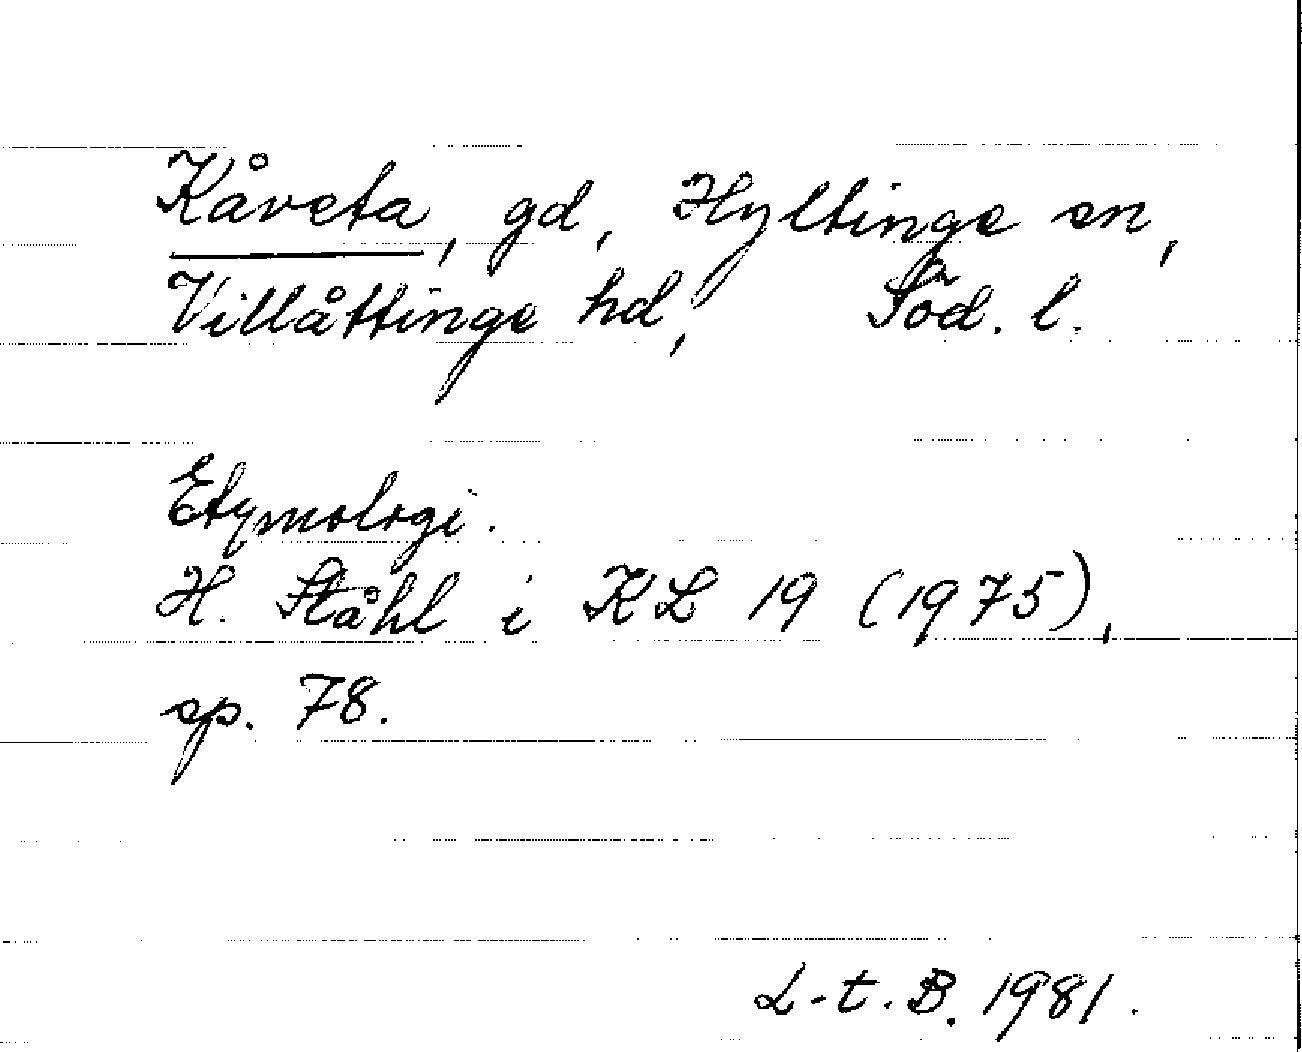 Kåveta, gd, Hyltinge sn,
Villåttinge hd, Söd. l.
Etymologi.
H. Ståhl i KL 19 (1975),
sp. 78.
L-t. B. 1981.